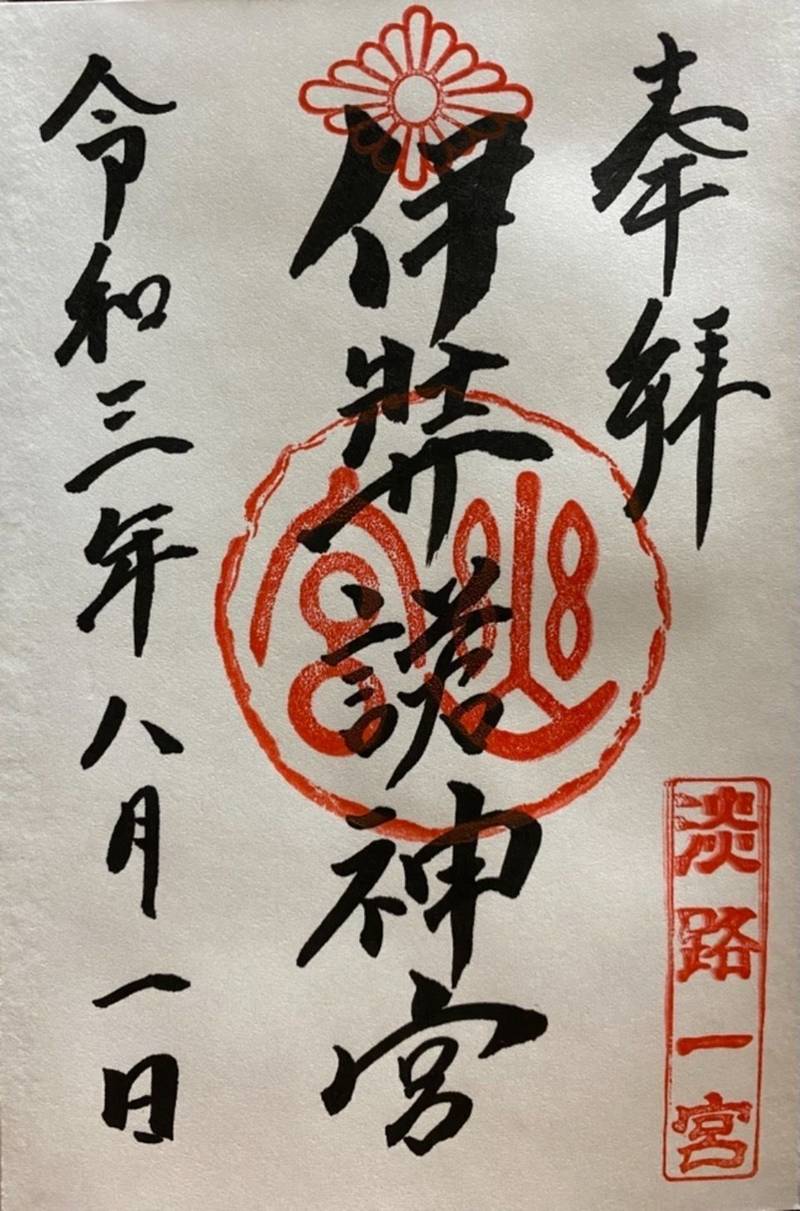 奉拝
淡路一宮
伊弉諾神宮
令和三年八月一日